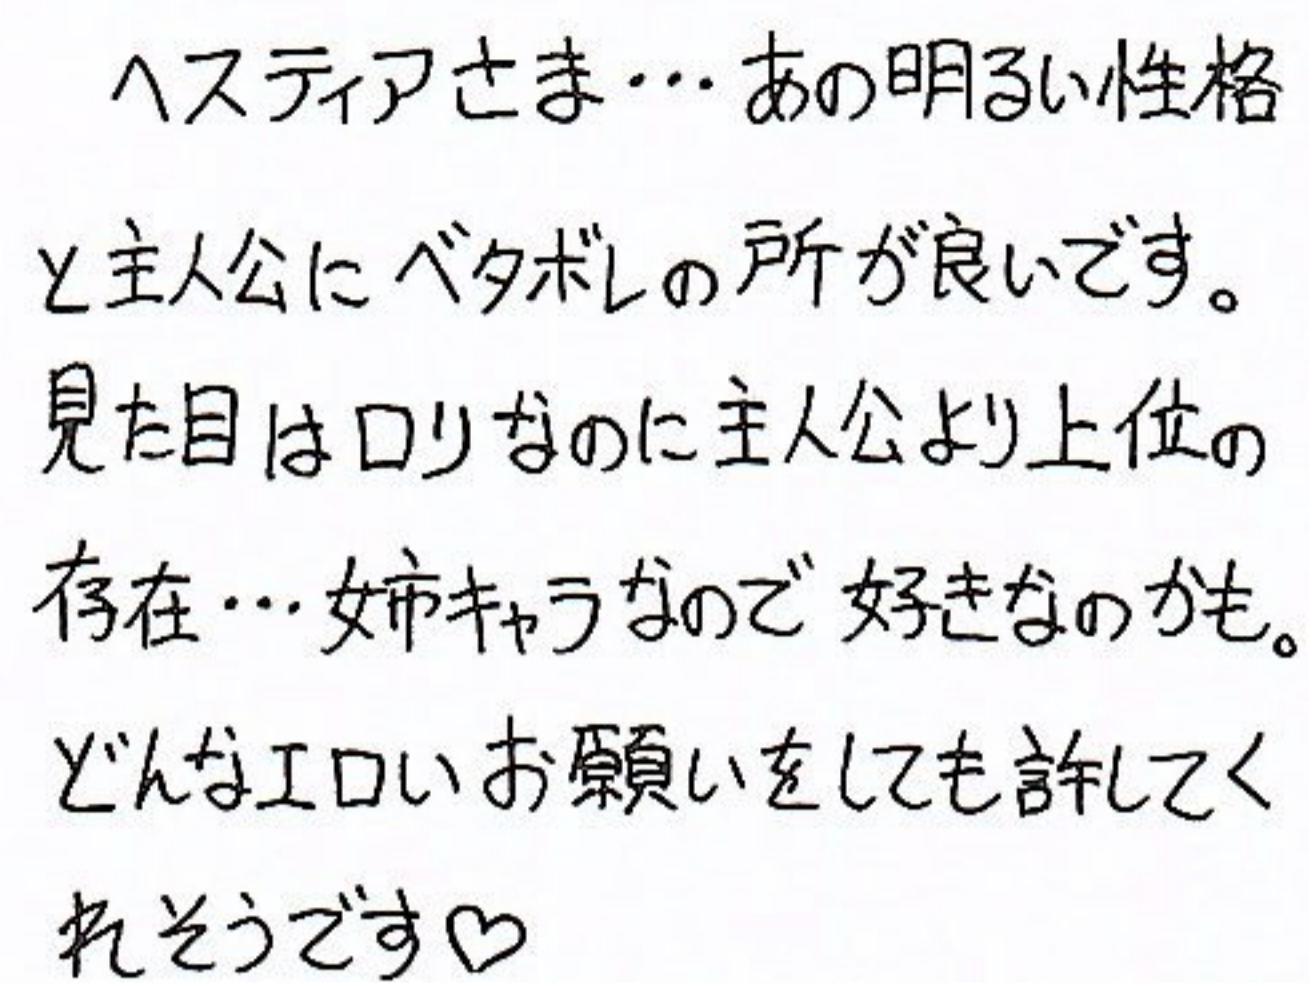 ヘスティアさま…あの明るい性格
と主人公にベタボレの所が良いです。
見た目はロリなのに主人公より上位の
存在…姉キャラなので好きなのかも。
どんなエロいお願いをしても許してく
れそうです♡